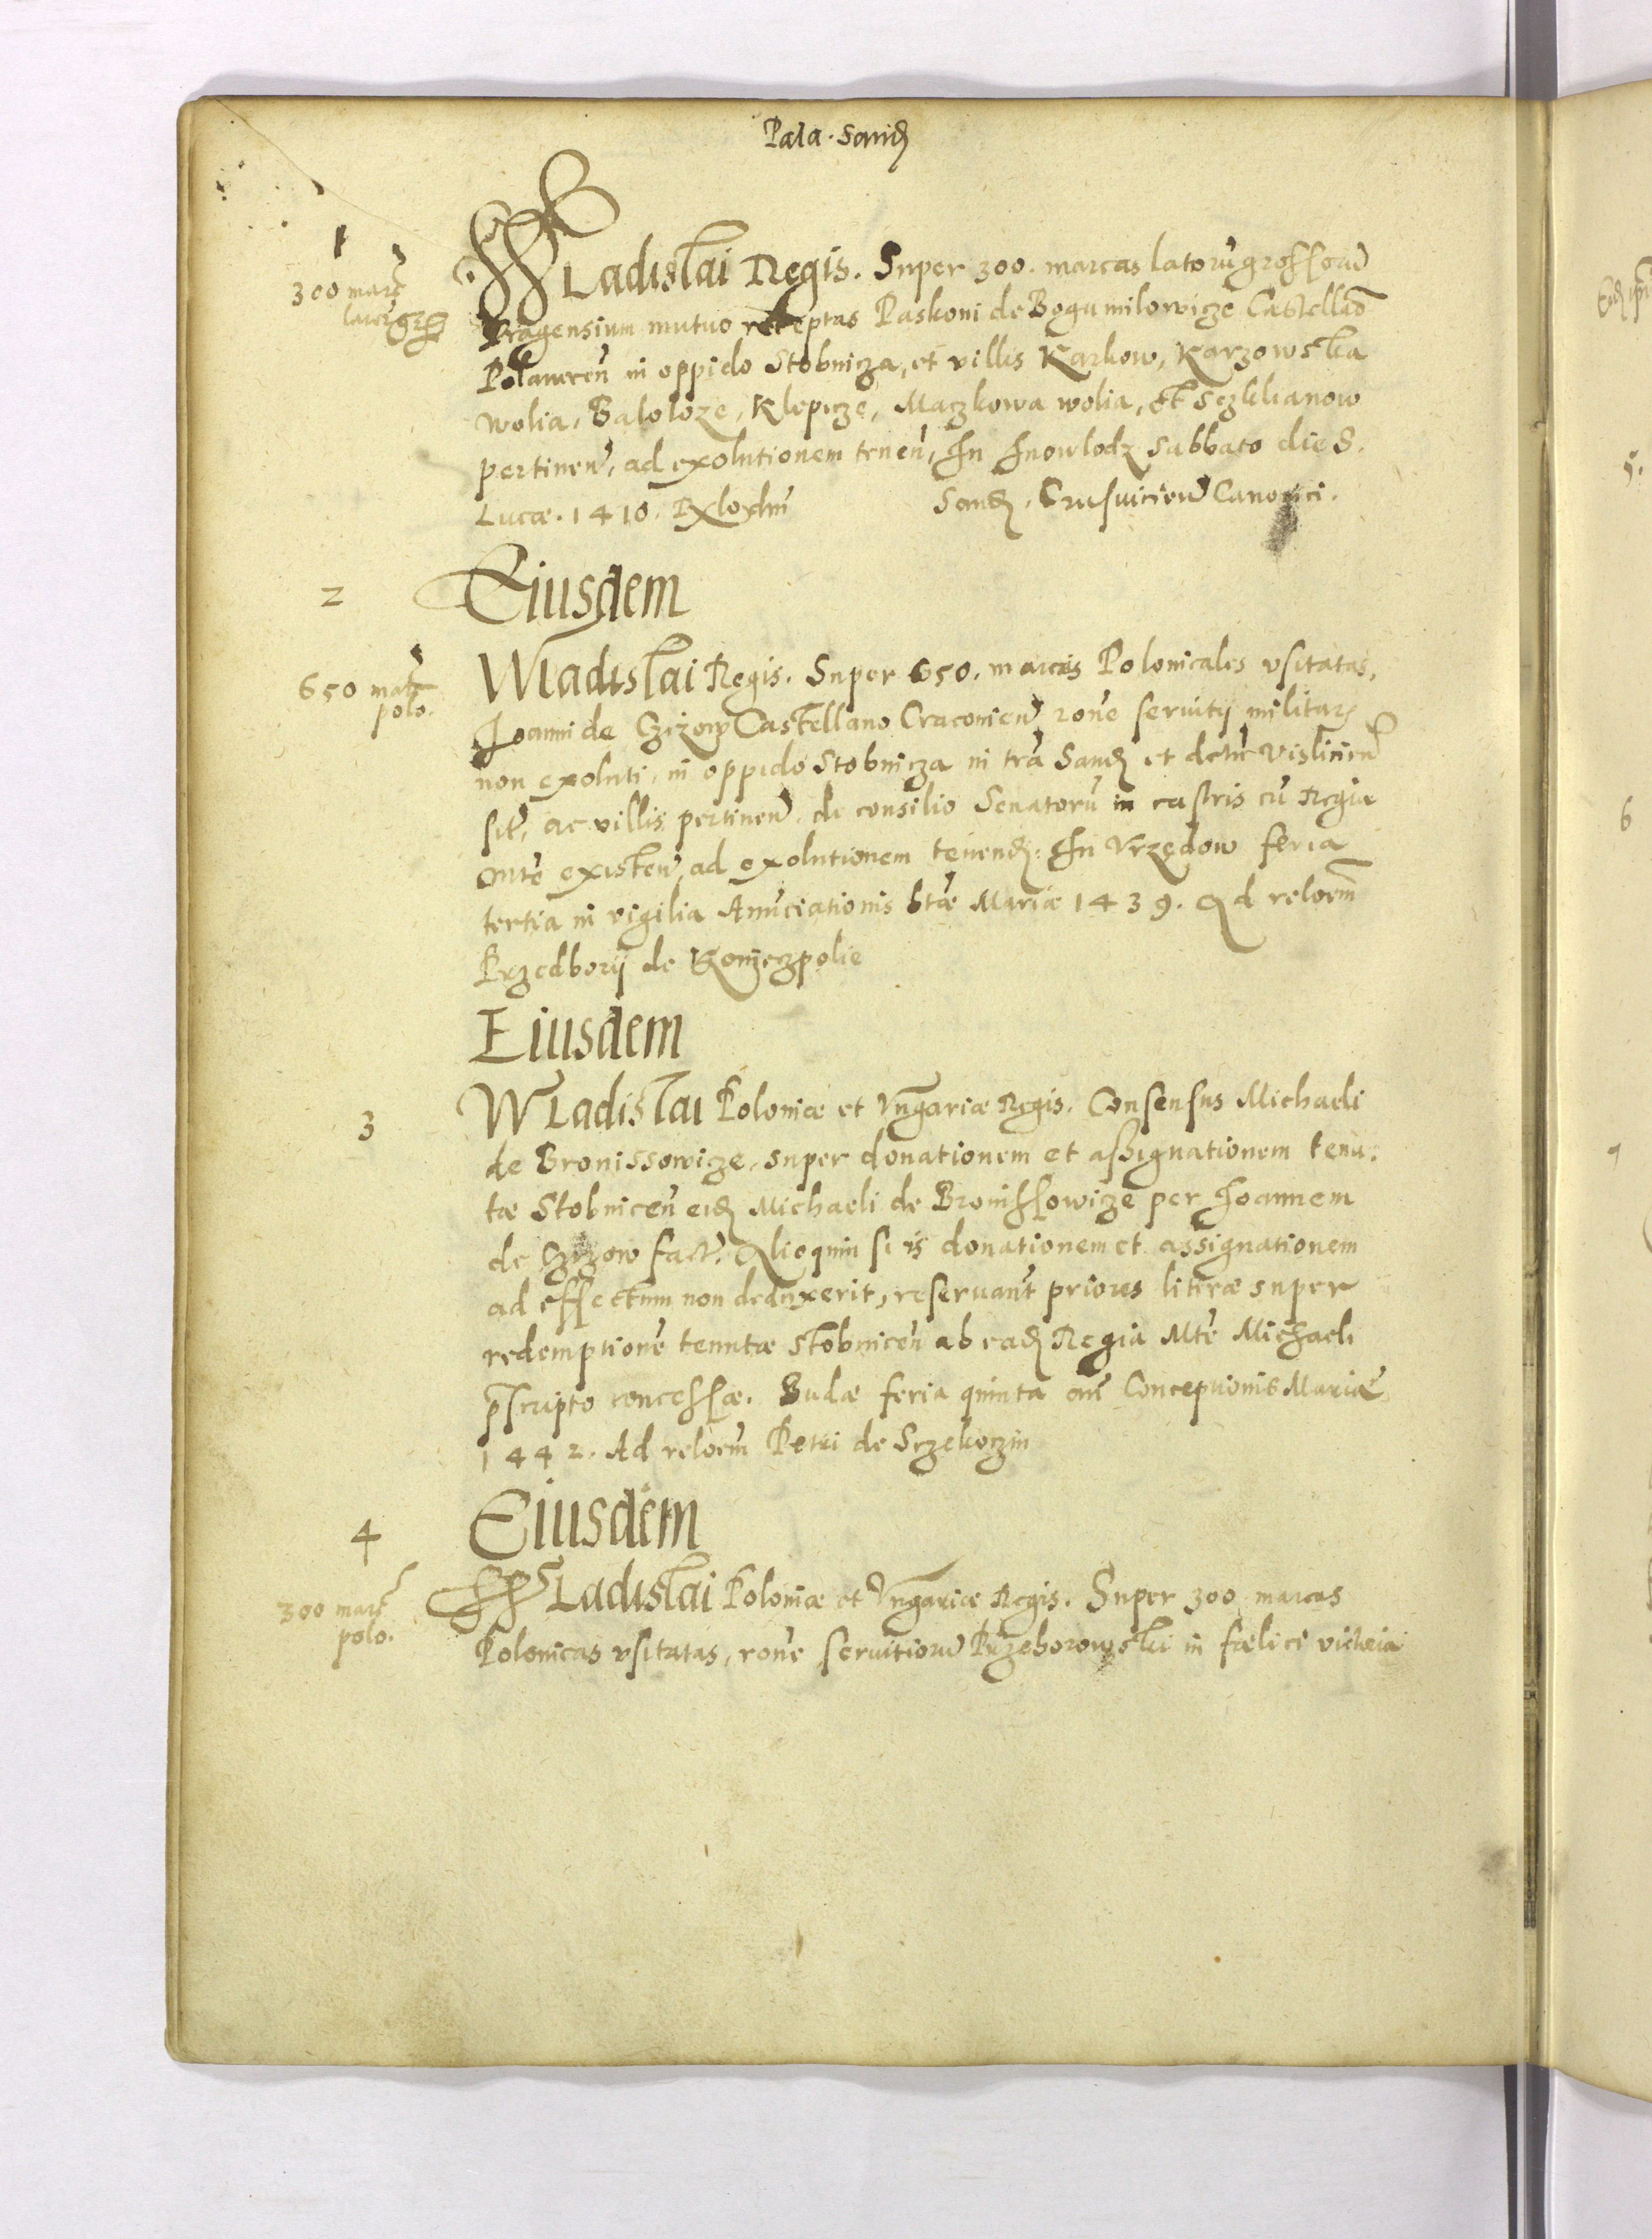 Pala. Sand
1
300 marc
lator gross
Wladislai Regis. Super 300. marcas latorũ grossorũ
Pragensium mutuo receptas Paskoni de Bogumilowicze Castellão
Polanecen̄ in oppido Stobnicza, et villis Karkow, Karzowska
wolia, Baloloze, Klepicze, Maczkowa wolia, et Sczklianow
pertinen̄, ad exolutionem tenen̄, In Inowlodz Sabbato die S.
Lucæ. 1410. Sand. Crusuicien̄ Canonici.
2
Eiusdem
650 marc
polo.
Wladislai Regis. Super 650. marcas Polonicales vsitatas,
Joanni de Czizow Castellano Cracouien̄ rone seruitij militar
non exoluti, in oppido Stobnicza in tra Sand et dctu Vislicien̄
sit, ac villis pertinen̄ de consilio Senatorũ in castris cũ Regia
Mte existen̄, ad exolutionem tenend: In Vrzedow feria
tertia in vigilia Anũciationis btæ Mariæ 1439. Ad reloem
Przedborij de Konyeczpolie
Eiusdem
3
Wladislai Poloniæ et Vngariæ Regis. Consensus Michaeli
de Bronissowicze, super donationem et assignationem tenu:
tæ Stobnicen̄ eid Michaeli de Bronissowicze per Joannem
de Czyzow fact. Alioquin si is donationem et assignationem
ad effectum non deduxerit, reseruant priores literæ super
redemptione tenutæ Stobnicen̄ ab ead Regia Mte Michaeli
pscripto concessæ. Budæ feria quinta an̄ Conceptionis Mariæ
1442. Ad reloem Petri de Sczekoczin
Eiusdem
4
300 marc
polo.
Wladislai Poloniæ et Vngariæ Regis. Super 300 marcas
Polonicas vsitatas, rone seruitiorũ Przehorowski in fælici victoria
5.
6